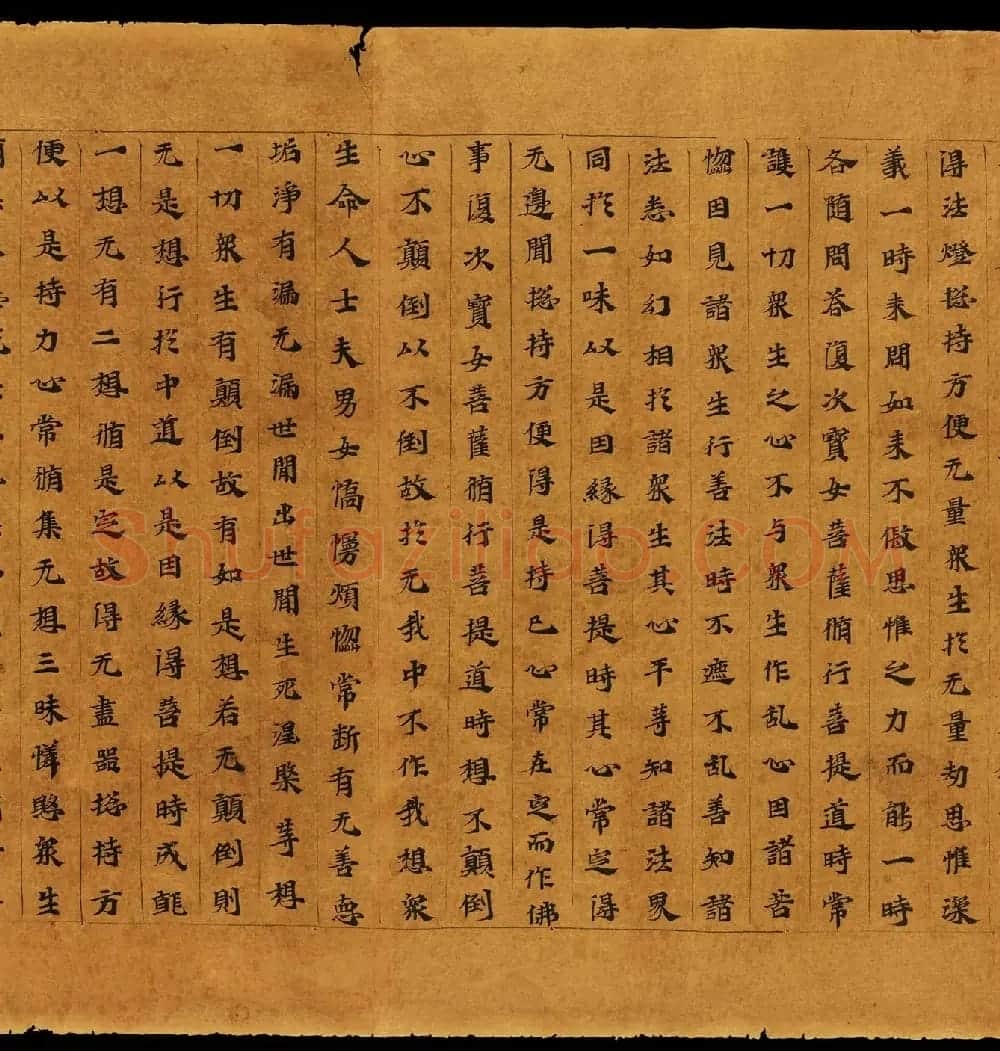 得法燈揔持方便无量衆生扵无量劫思惟深
義一時来問如来不儆思惟之力而能一時
各随問荅復次寶女菩薩脩行菩提道時常
護一切衆生之心不与衆生作乱心因諸苦
惱因見諸衆生行善法時不遮不乱善知諸
法悉如幻相扵諸衆生其心平等知諸法界
同扵一味以是因縁得菩提時其心常定得
无邊聞揔持方便得是持已心常在定而作佛
事復次寶女菩薩脩行菩提道時想不顛倒
心不顛倒以不倒故扵无我中不作我想衆
生命人士夫男女憍慢煩惱常断有无善惡
垢淨有漏无漏世間出世間生死涅槃等想
一切衆生有顛倒故有如是想若无顛倒則
无是想行扵中道以是因縁得菩提時成就
一想无有二想脩是定故得无盡器揔持方
便以是持力心常脩集无想三昧憐愍衆生
Shufaziliao.COM